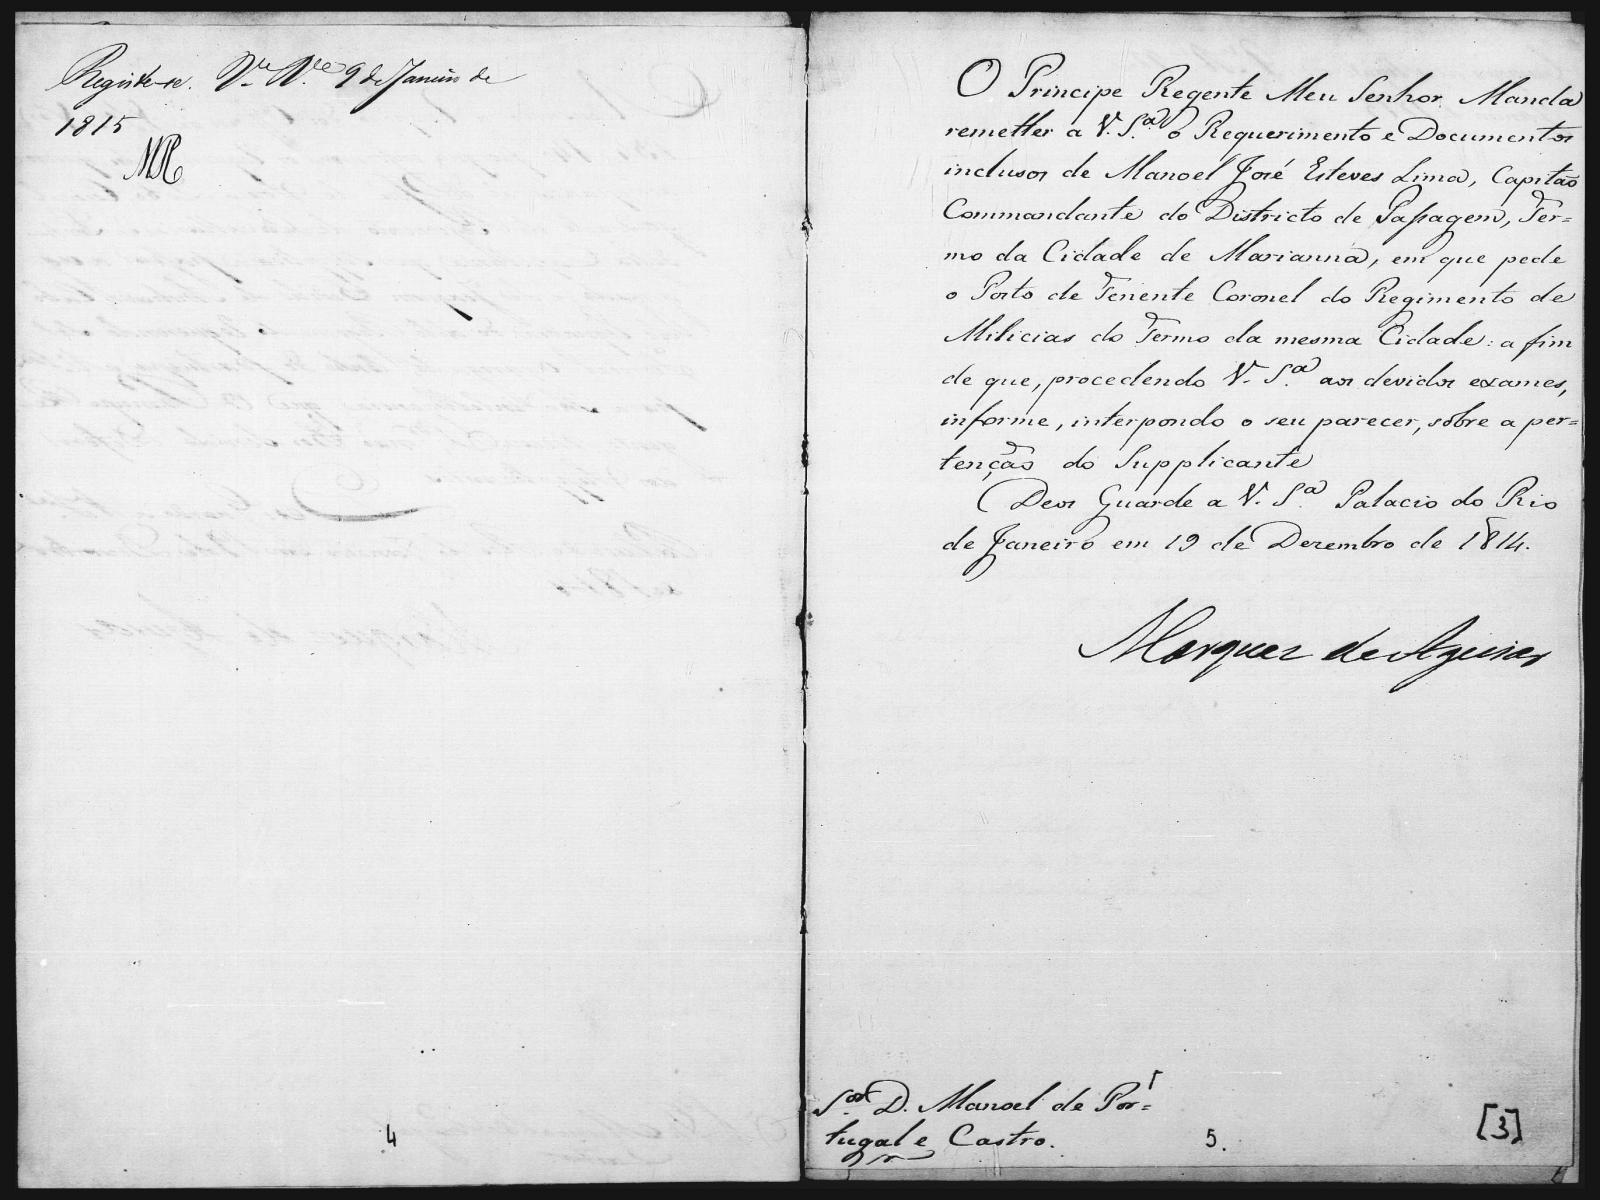 Registe-se. V.ª R.ca 9 de Janeiro de
1815
4
O Principe Regente Meu Senhor Manda
remetter a V. S.ª o Requerimento e Documentos
inclusos de Manoel José Esteves Lima, Capitão
Commandante do Districto de Passagem, Ter=
mo da Cidade de Marianna, em que pede
o Posto de Tenente Coronel do Regimento de
Milicias do Termo da mesma Cidade: a fim
de que, procedendo V. S.ª aos devidos exames,
informe, interpondo o seu parecer, sobre a per=
tenção do Supplicante
Deos Guarde a V. S.ª Palacio do Rio
de Janeiro em 19 de Dezembro de 1814.
Marquez de Aguiar
S.or D. Manoel de Por=
tugal e Castro.
5.
[3]